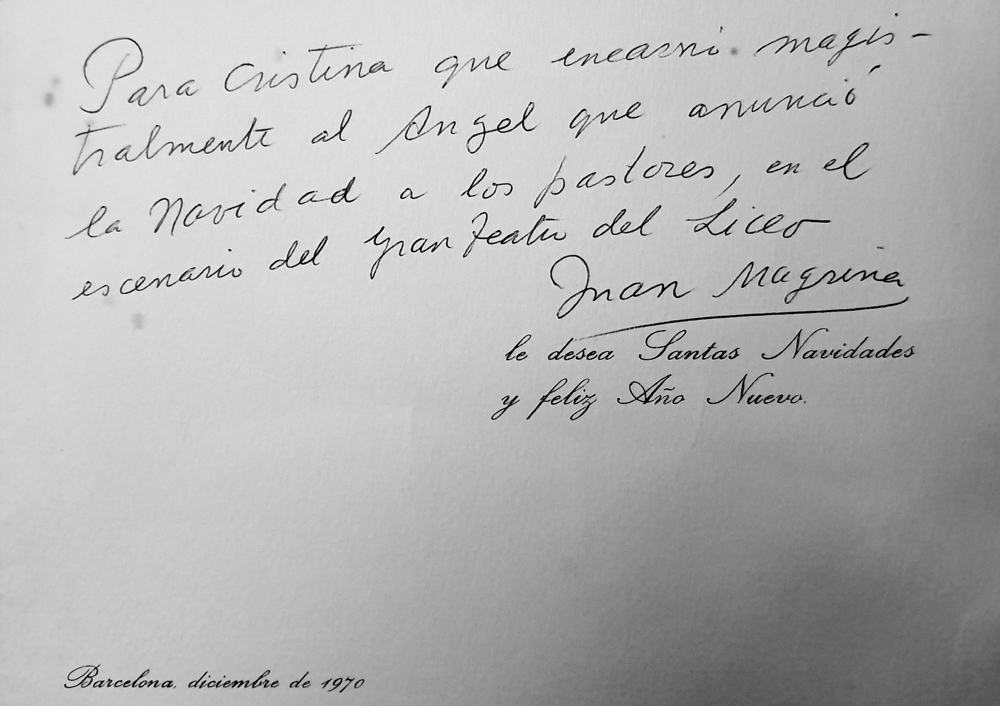 Para Cristina que encarnó magis-
tralmente al Angel que anunció
la Navidad a los pastores, en el
escenario del Gran Teatro del Liceo
Juan Magriña
le desea Santas Navidades
y feliz Año Nuevo.
Barcelona, diciembre de 1970